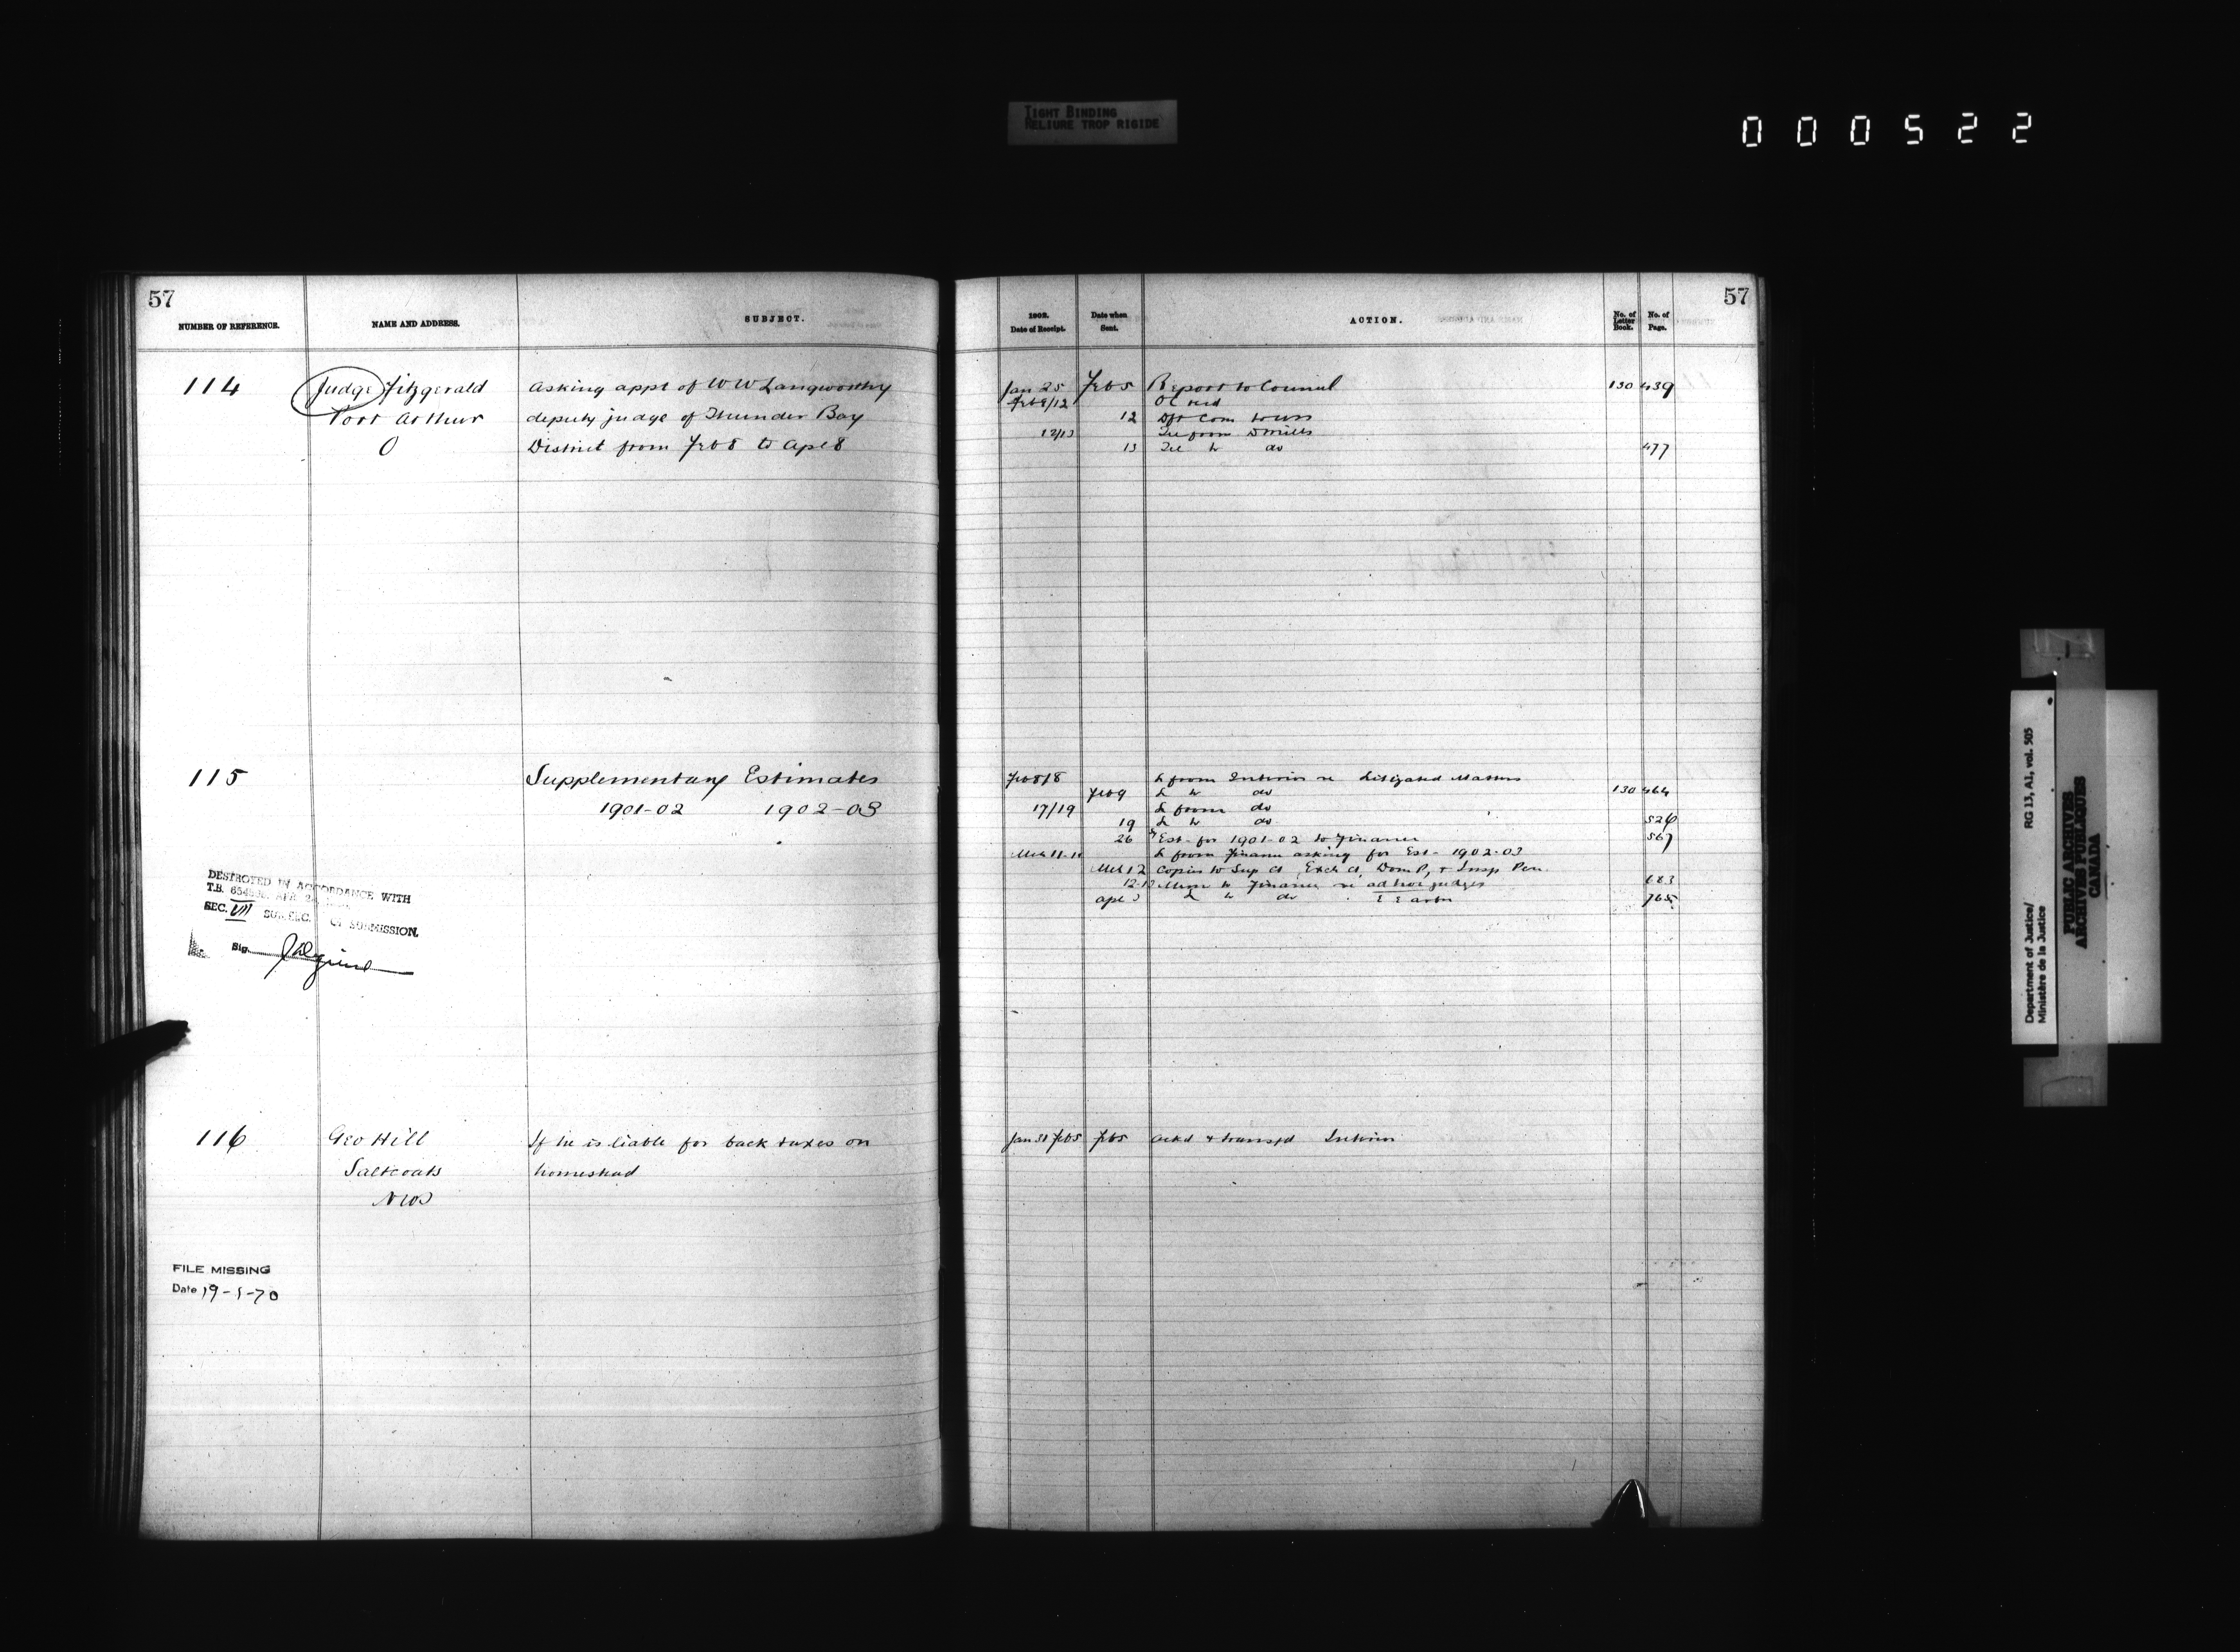 TIGHT BINDING
RELIURE TROP RIGIDE
000522
57
NUMBER OF REFERENCE. NAME AND ADDRESS. SUBJECT.
114 Judge Fitzgerald Asking appt of W W Langworthy
Port Arthur deputy judge of Thunder Bay
O District from Feb 8 to Apl 8
115 Supplementary Estimates
1901-02 1902-03
DESTROYED IN ACCORDANCE WITH
T.B.
SEC. VII SUB. SEC. OF SUBMISSION.
Sig.
116 Geo Hill If he is liable for back taxes on
Saltcoats homestead
NWT
FILE MISSING
Date 19-5-70
57
1902. Date of Receipt. Date when Sent. ACTION. No. of Letter Book. No. of Page.
Jan 25 Feb 5 Report to Council 130 439
Feb 8/12 OC recd
12 Dft Com to USS
12/13 Tel from D Mills
13 Tel to do 477
Feb 8/8 L from Interior re Litigated Matters
Feb 9 L to do 130 464
17/19 L from do
19 L to do 526
26 Est. for 1901-02 to Finance 567
Mch 11-11 L from Finance asking for Est- 1902-03
Mch 12 Copies to Sup Ct, Exch Ct, Dom P, & Insp Pen.
12-12 Mem to Finance re ad hoc judges 683
Apl 3 L to do 765
Jan 31 Feb 5 Feb 5 Ackd & transfd Interior
Department of Justice/
Ministère de la Justice
RG 13, A1, vol. 505
PUBLIC ARCHIVES
ARCHIVES PUBLIQUES
CANADA